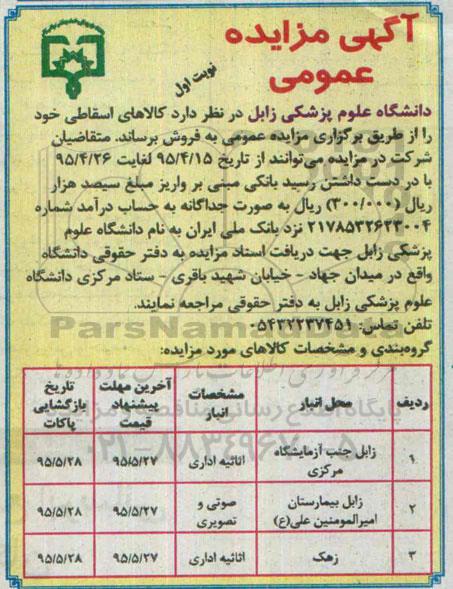 آگهی مزایده
عمومی
نوبت اول
دانشگاه علوم پزشکی زابل در نظر دارد کالاهای اسقاطی خود
را از طریق برگزاری مزایده عمومی به فروش برساند. متقاضیان
شرکت در مزایده می‌توانند از تاریخ ۹۵/۴/۱۵ لغایت ۹۵/۴/۲۶
با در دست داشتن رسید بانکی مبنی بر واریز مبلغ سیصد هزار
ریال (۳۰۰/۰۰۰) ریال به صورت جداگانه به حساب درآمد شماره
۲۱۷۸۵۳۲۶۲۳۰۰۴ نزد بانک ملی ایران به نام دانشگاه علوم
پزشکی زابل جهت دریافت اسناد مزایده به دفتر حقوقی دانشگاه
واقع در میدان جهاد - خیابان شهید باقری - ستاد مرکزی دانشگاه
علوم پزشکی زابل به دفتر حقوقی مراجعه نمایند.
تلفن تماس: ۰۵۴۳۲۲۳۷۴۵۱
گروه‌بندی و مشخصات کالاهای مورد مزایده:
ردیف محل انبار مشخصات انبار آخرین مهلت پیشنهاد قیمت تاریخ بازگشایی پاکات
۱ زابل جنب آزمایشگاه مرکزی اثاثیه اداری ۹۵/۵/۲۷ ۹۵/۵/۲۸
۲ زابل بیمارستان امیرالمومنین علی(ع) صوتی و تصویری ۹۵/۵/۲۷ ۹۵/۵/۲۸
۳ زهک اثاثیه اداری ۹۵/۵/۲۷ ۹۵/۵/۲۸